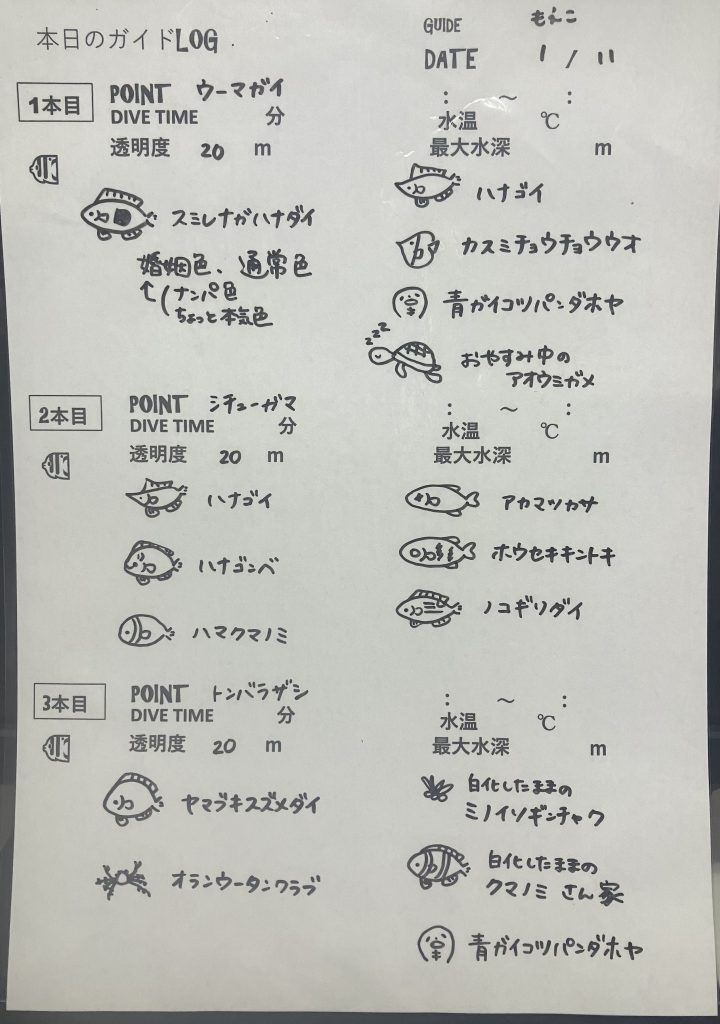 本日のガイドLOG
GUIDE もえこ
DATE 1 / 11
1本目
POINT ウーマガイ
DIVE TIME 分
透明度 20 m
: ～ :
水温 ℃
最大水深 m
スミレナガハナダイ
婚姻色、通常色
↑(ナンパ色
ちょっと本気色
ハナゴイ
カスミチョウチョウウオ
青ガイコツパンダホヤ
zzz
おやすみ中の
アオウミガメ
2本目
POINT シチューガマ
DIVE TIME 分
透明度 20 m
: ～ :
水温 ℃
最大水深 m
ハナゴイ
ハナゴンベ
ハマクマノミ
アカマツカサ
ホウセキキントキ
ノコギリダイ
3本目
POINT トンバラザシ
DIVE TIME 分
透明度 20 m
: ～ :
水温 ℃
最大水深 m
ヤマブキスズメダイ
オランウータンクラブ
白化したままの
ミノイソギンチャク
白化したままの
クマノミ さん家
青ガイコツパンダホヤ